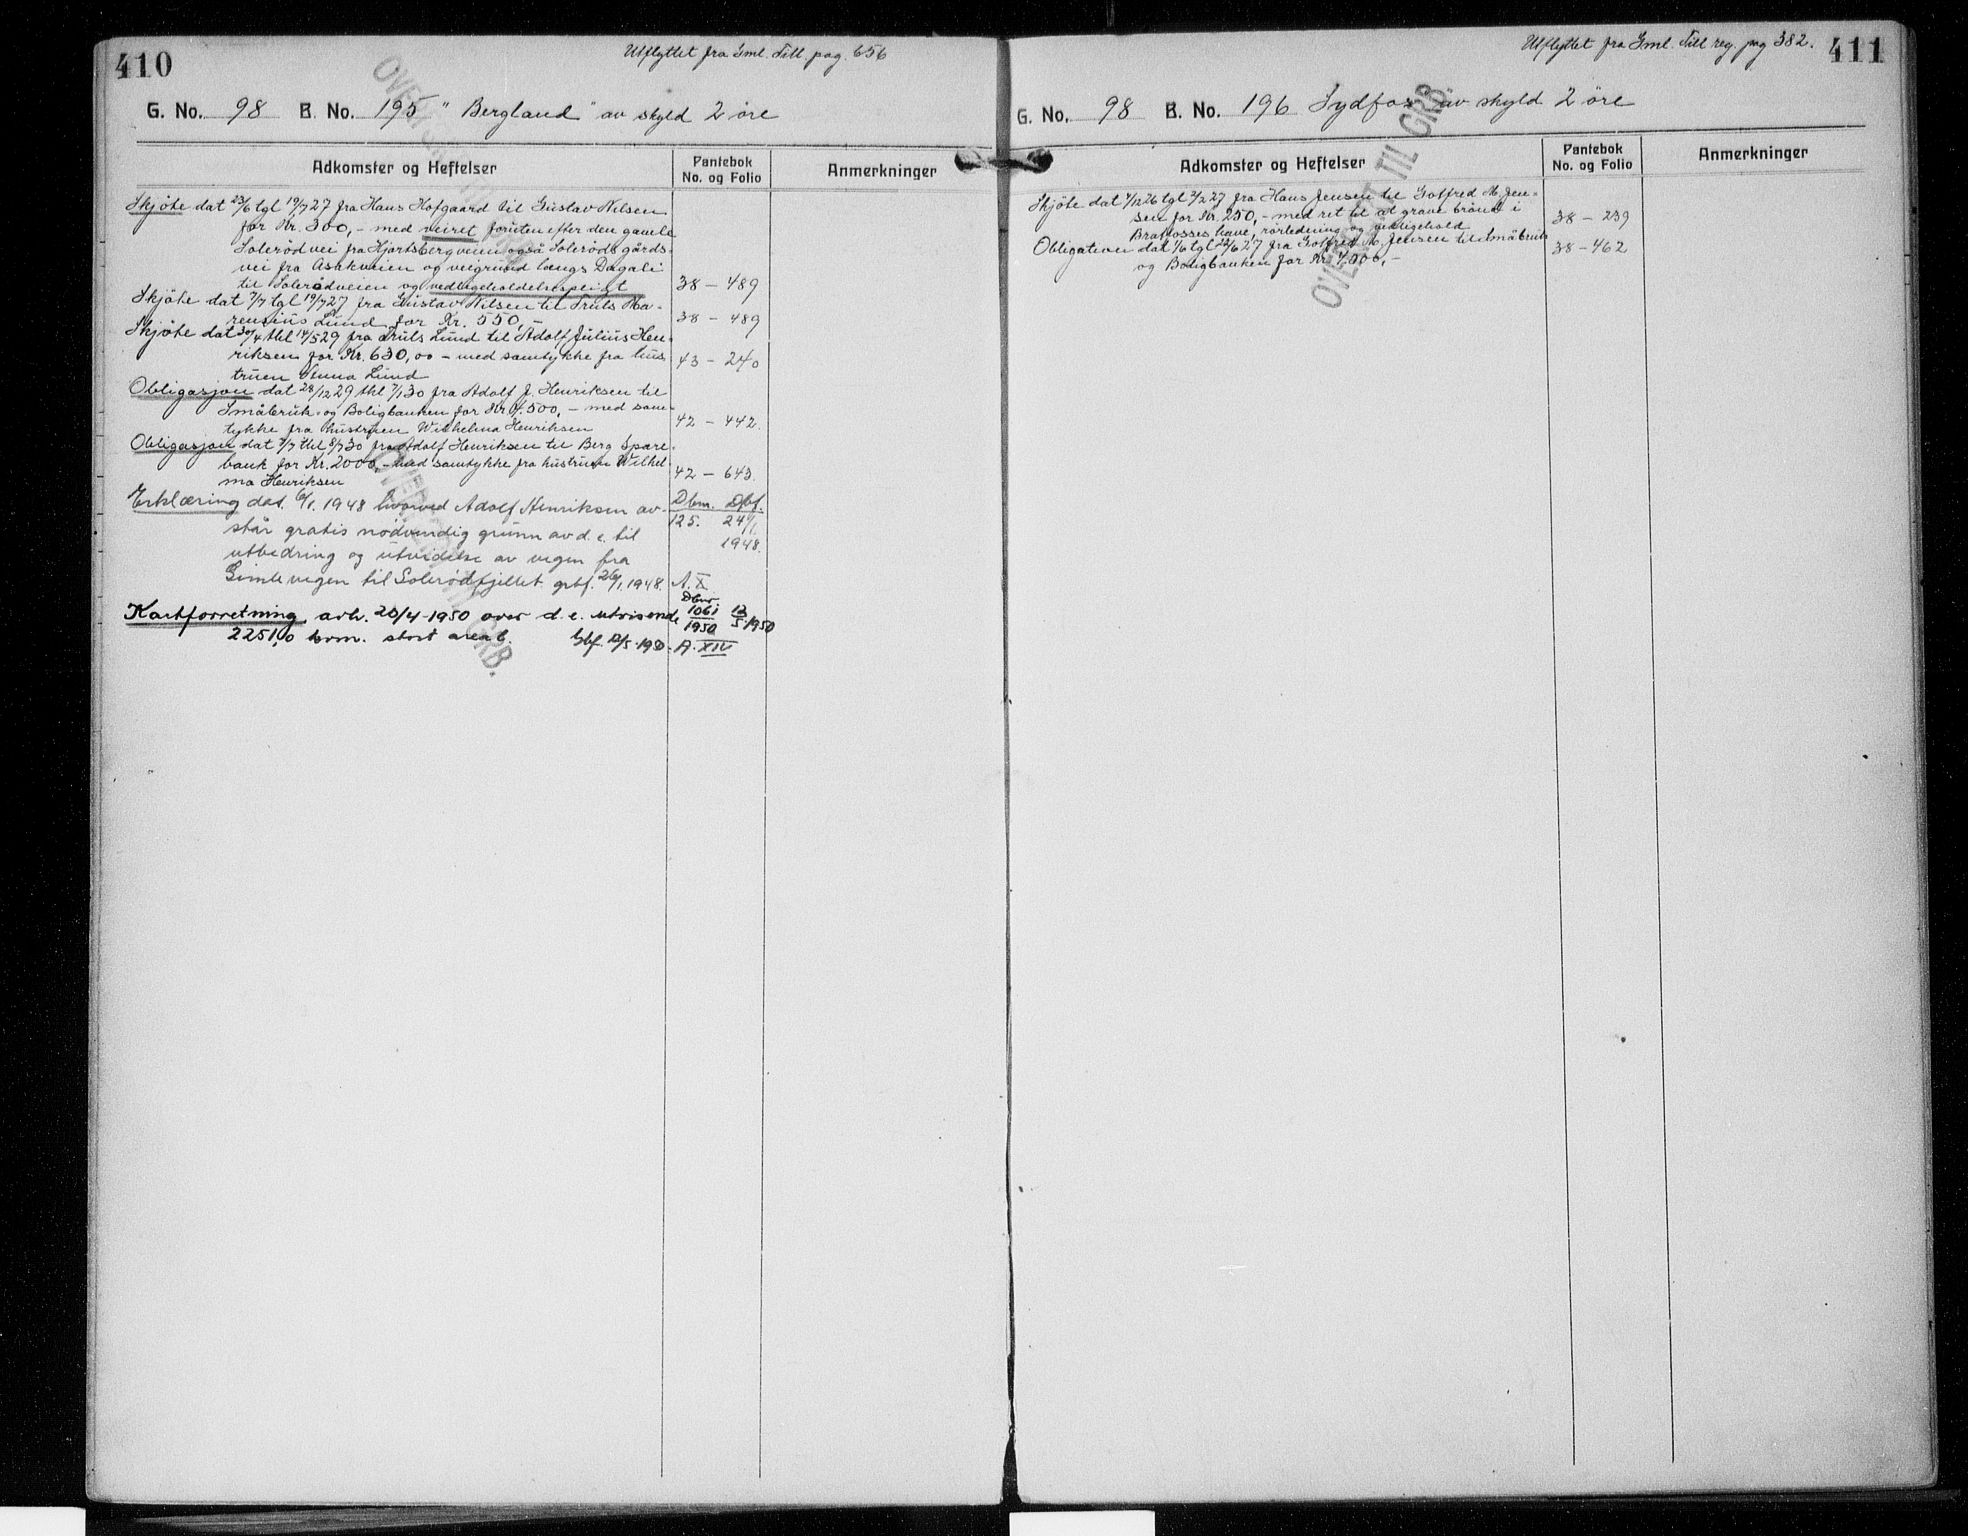 410
Utflyttet fra Gml. Till pag. 656
G. No. 98 B. No. 195 " Bergland " av skyld 2 øre
Adkomster og Heftelser
Pantebok
No. og Folio
Anmerkninger
Skjöte dat 23/6 tgl 19/7 27 fra Hans Hofgaard til Gustav Nilsen
for Kr. 300,- med veiret foruten efter den gamle
Solerød vei fra Hjortsbergveien også Solerøds gårds-
vei fra Asakveien og veigrund langs Dagali
til Solerødveien og vedligeholdelsespligt 38 - 489
Skjöte dat 7/7 tgl 19/7 27 fra Gustav Nilsen til Truls Ma-
rensius Lund for Kr. 550,- 38 - 489
Skjöte dat 30/4 thl 14/5 29 fra Truls Lund til Adolf Julius Hen-
riksen for Kr. 630,00 - med samtykke fra hus- 43 - 240
truen Lund
Obligasjon dat 28/12 29 thl 7/1 30 fra Adolf J. Henriksen til
Småbruk- og Boligbanken for Kr. 500,- med sam-
tykke fra hustruen Wilhelma Henriksen 42 - 442.
Obligasjon dat 7/7 thl 8/7 30 fra Adolf Henriksen til Berg Spare-
bank for Kr. 2000,- med samtykke fra hustruen Wilhel-
ma Henriksen 42 - 643.
Erklæring dat. 6/1. 1948 hvorved Adolf Henriksen av- Dbnr. Dbf.
står gratis nødvendig grunn av d. e. til 125. 24/1
utbedring og utvidelse av vegen fra 1948.
Gimlevegen til Solerødfjellet. grbf. 26/1 1948. A. X
Kartforretning avh. 20/4-1950 over d. e. utvisende Dbnr 1061/1950 12/5 1950
2251,0 kvm. stort areal. Gbf. 12/5-1950. A. XIV
OVERFØRT TIL GRB.
OVERFØRT TIL GRB.
Utflyttet fra Gml. Till reg. pag 382.
411
G. No. 98 B. No. 196 Sydfoss av skyld 2 øre
Adkomster og Heftelser
Pantebok
No. og Folio
Anmerkninger
Skjöte dat 4/12 26 tgl 2/2 27 fra Hans Jensen til Gotfred M. Jen-
sen for Kr. 250,- med ret til at grave brönd i 38 - 239
Bratfosses have, rørledning og vedligehold
Obligation dat 1/6 tgl 22/6 27 fra Gotfred M. Jensen til Småbruk- 38 - 462
og Boligbanken for Kr. 4,000,-
OVERFØRT TIL GRB.